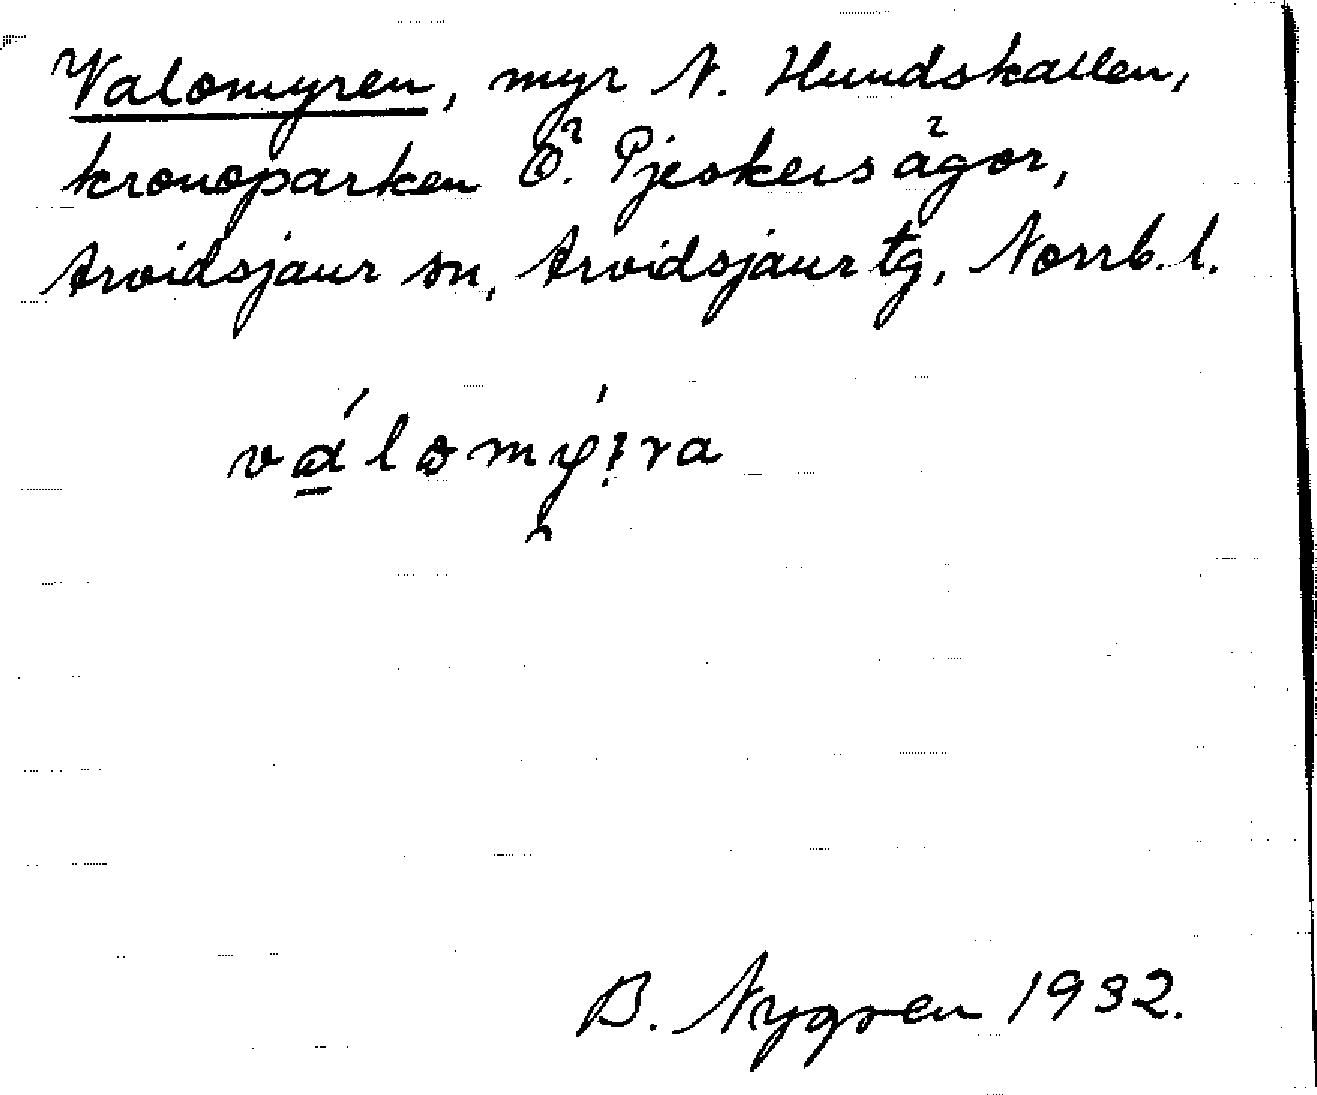 Valomyren, myr N. Hundskallen,
kronoparken Ö. Pjeskers ägor,
Arvidsjaur sn, Arvidsjaur tg, Norrb. l.
válomý:ra
B. Nygren 1932.